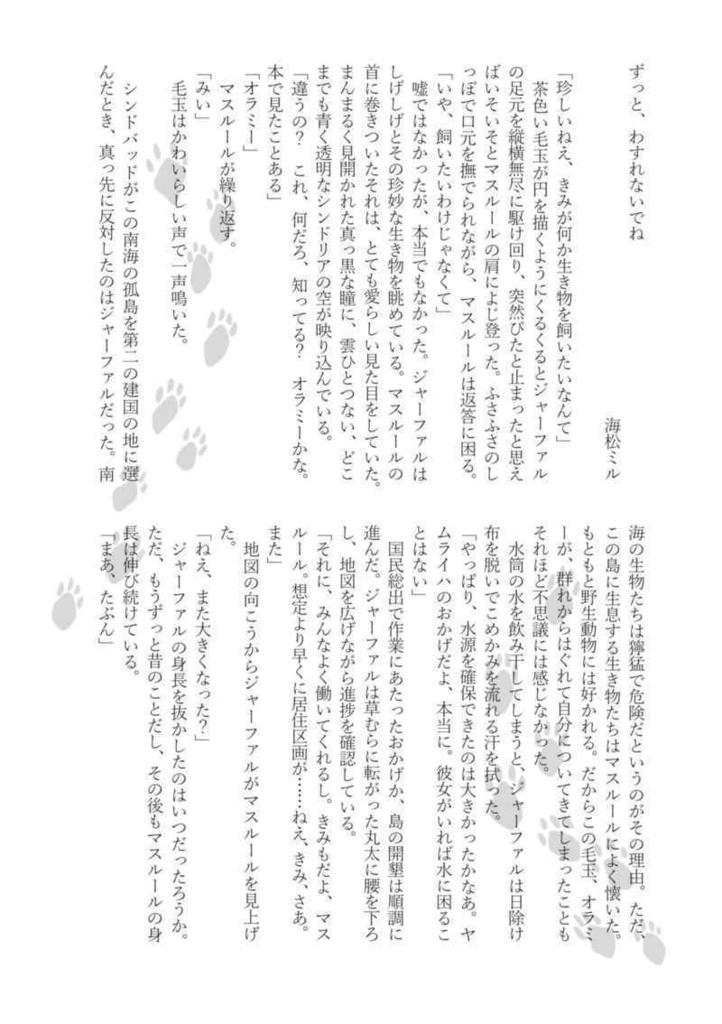 ずっと、わすれないでね
海松ミル
「珍しいねえ、きみが何か生き物を飼いたいなんて」
　茶色い毛玉が円を描くようにくるくるとジャーファル
の足元を縦横無尽に駆け回り、突然ぴたと止まったと思え
ばいそいそとマスルールの肩によじ登った。ふさふさのし
っぽで口元を撫でられながら、マスルールは返答に困る。
「いや、飼いたいわけじゃなくて」
　嘘ではなかったが、本当でもなかった。ジャーファルは
しげしげとその珍妙な生き物を眺めている。マスルールの
首に巻きついたそれは、とても愛らしい見た目をしていた。
まんまるく見開かれた真っ黒な瞳に、雲ひとつない、どこ
までも青く透明なシンドリアの空が映り込んでいる。
「違うの？　これ、何だろ、知ってる？　オラミーかな。
本で見たことある」
「オラミー」
　マスルールが繰り返す。
「みい」
　毛玉はかわいらしい声で一声鳴いた。
　シンドバッドがこの南海の孤島を第二の建国の地に選
んだとき、真っ先に反対したのはジャーファルだった。南
海の生物たちは獰猛で危険だというのがその理由。ただ、
この島に生息する生き物たちはマスルールによく懐いた。
もともと野生動物には好かれる。だからこの毛玉、オラミ
ーが、群れからはぐれて自分についてきてしまったことも
それほど不思議には感じなかった。
　水筒の水を飲み干してしまうと、ジャーファルは日除け
布を脱いでこめかみを流れる汗を拭った。
「やっぱり、水源を確保できたのは大きかったかなあ。ヤ
ムライハのおかげだよ、本当に。彼女がいれば水に困るこ
とはない」
　国民総出で作業にあたったおかげか、島の開墾は順調に
進んだ。ジャーファルは草むらに転がった丸太に腰を下ろ
し、地図を広げながら進捗を確認している。
「それに、みんなよく働いてくれるし。きみもだよ、マス
ルール。想定より早くに居住区画が……ねえ、きみ、さあ。
また」
　地図の向こうからジャーファルがマスルールを見上げ
た。
「ねえ、また大きくなった？」
　ジャーファルの身長を抜かしたのはいつだったろうか。
ただ、もうずっと昔のことだし、その後もマスルールの身
長は伸び続けている。
「まあ、たぶん」